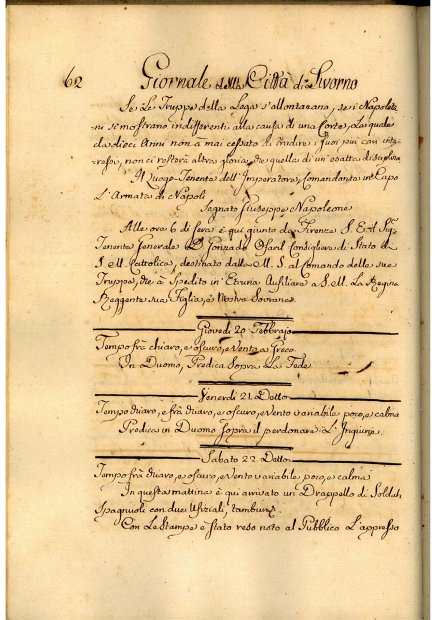 62 Giornale della Città di Livorno
Se Le Truppe della Lega s'allontanano, se i Napoleta
ni si mostrano indifferenti alla causa di una Corte, La quale
da dieci Anni non a mai cessato di tradire i suoi più cari inte
ressi, non ci resterà altra gloria, che quella di un'esatta disciplina
Il Luogo-Tenente dell'Imperatore, Comandante in Capo
L'Armata di Napoli
Segnato Giuseppe Napoleone
Alle ore 6 di sera è qui giunto da Firenze S. E. d Sigr
Tenente Generale Gonzalo Ofaril Consigliere di Stato di
S. M. Cattolica, destinato dalla M. S. al Comando delle sue
Truppe, che à Spedito in Etruria Ausiliare a S. M. La Regina
Reggente sua Figlia, e Nostra Sovrana.
Giovedì 20 Febbrajo
Tempo frà chiaro, e oscuro, e Vento a Greco
In Duomo, Predica Sopra La Fede
Venerdi 21. Detto
Tempo chiaro, e frà chiaro, e oscuro, e vento variabile poco, e calma
Predica in Duomo Sopra il perdonare L'Ingiurie
Sabato 22. Detto
Tempo frà chiaro, e oscuro, e Vento variabile poco, e calma
In questa mattina è qui arrivato un Drappello di Soldati
Spagnuoli con due Ufiziali, tamburo
Con Le Stampe è stato reso noto al Pubblico L'appresso